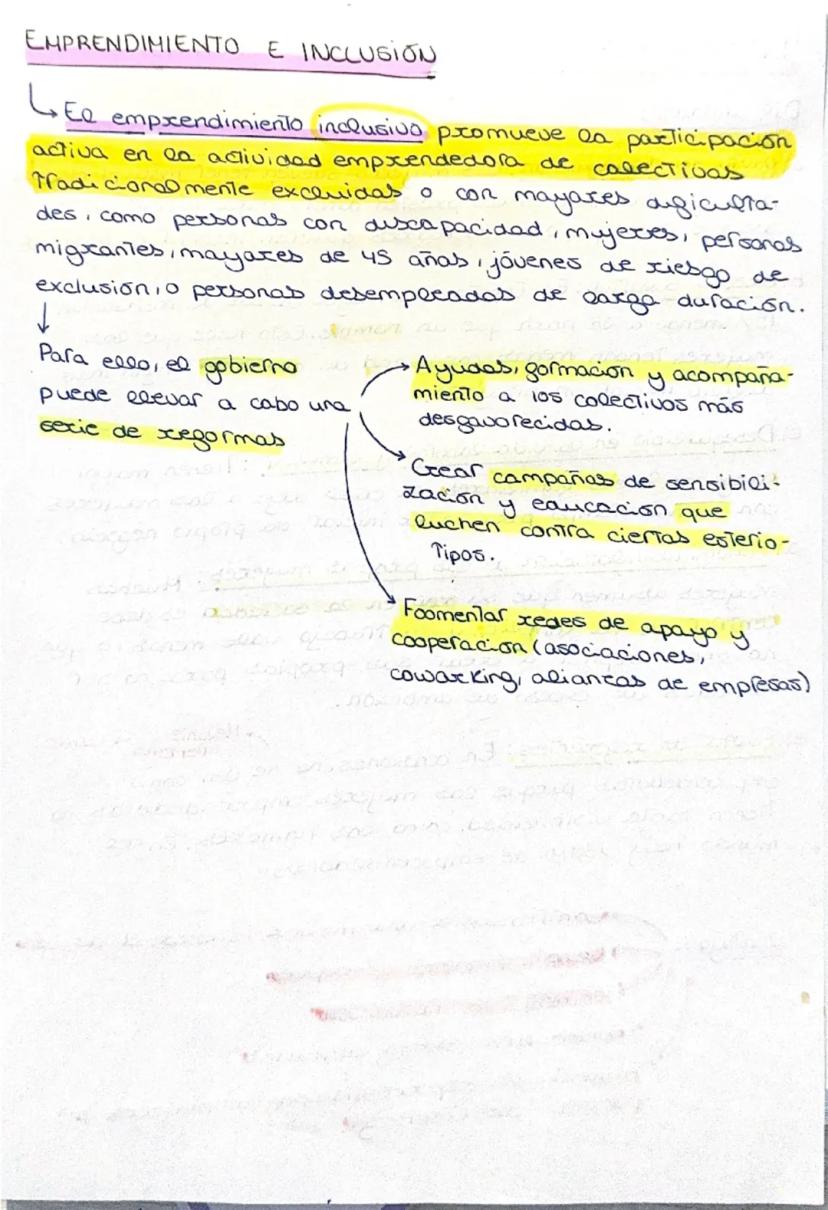 EMPRENDIMIENTO E INCLUSIÓN
El emprendimiento inclusivo promueve la participación
activa en la actividad emprendedora de colectivas
tradicionalmente excluidas o con mayores dificulta-
des, como personas con discapacidad, mujeres, personas
migrantes, mayores de 45 años, jóvenes de riesgo de
exclusión, o personas desempleadas de larga duración.
Para ello, el gobierno
puede llevar a cabo una
serie de reformas
Ayudas, formación y acompaña-
miento a los colectivos más
desfavorecidas.
Crear campañas de sensibili-
zación y educación que
luchen contra ciertas esterio-
tipos.
Foomentar redes de apoyo y
cooperación (asociaciones,
coworking, alianzas de empresas)